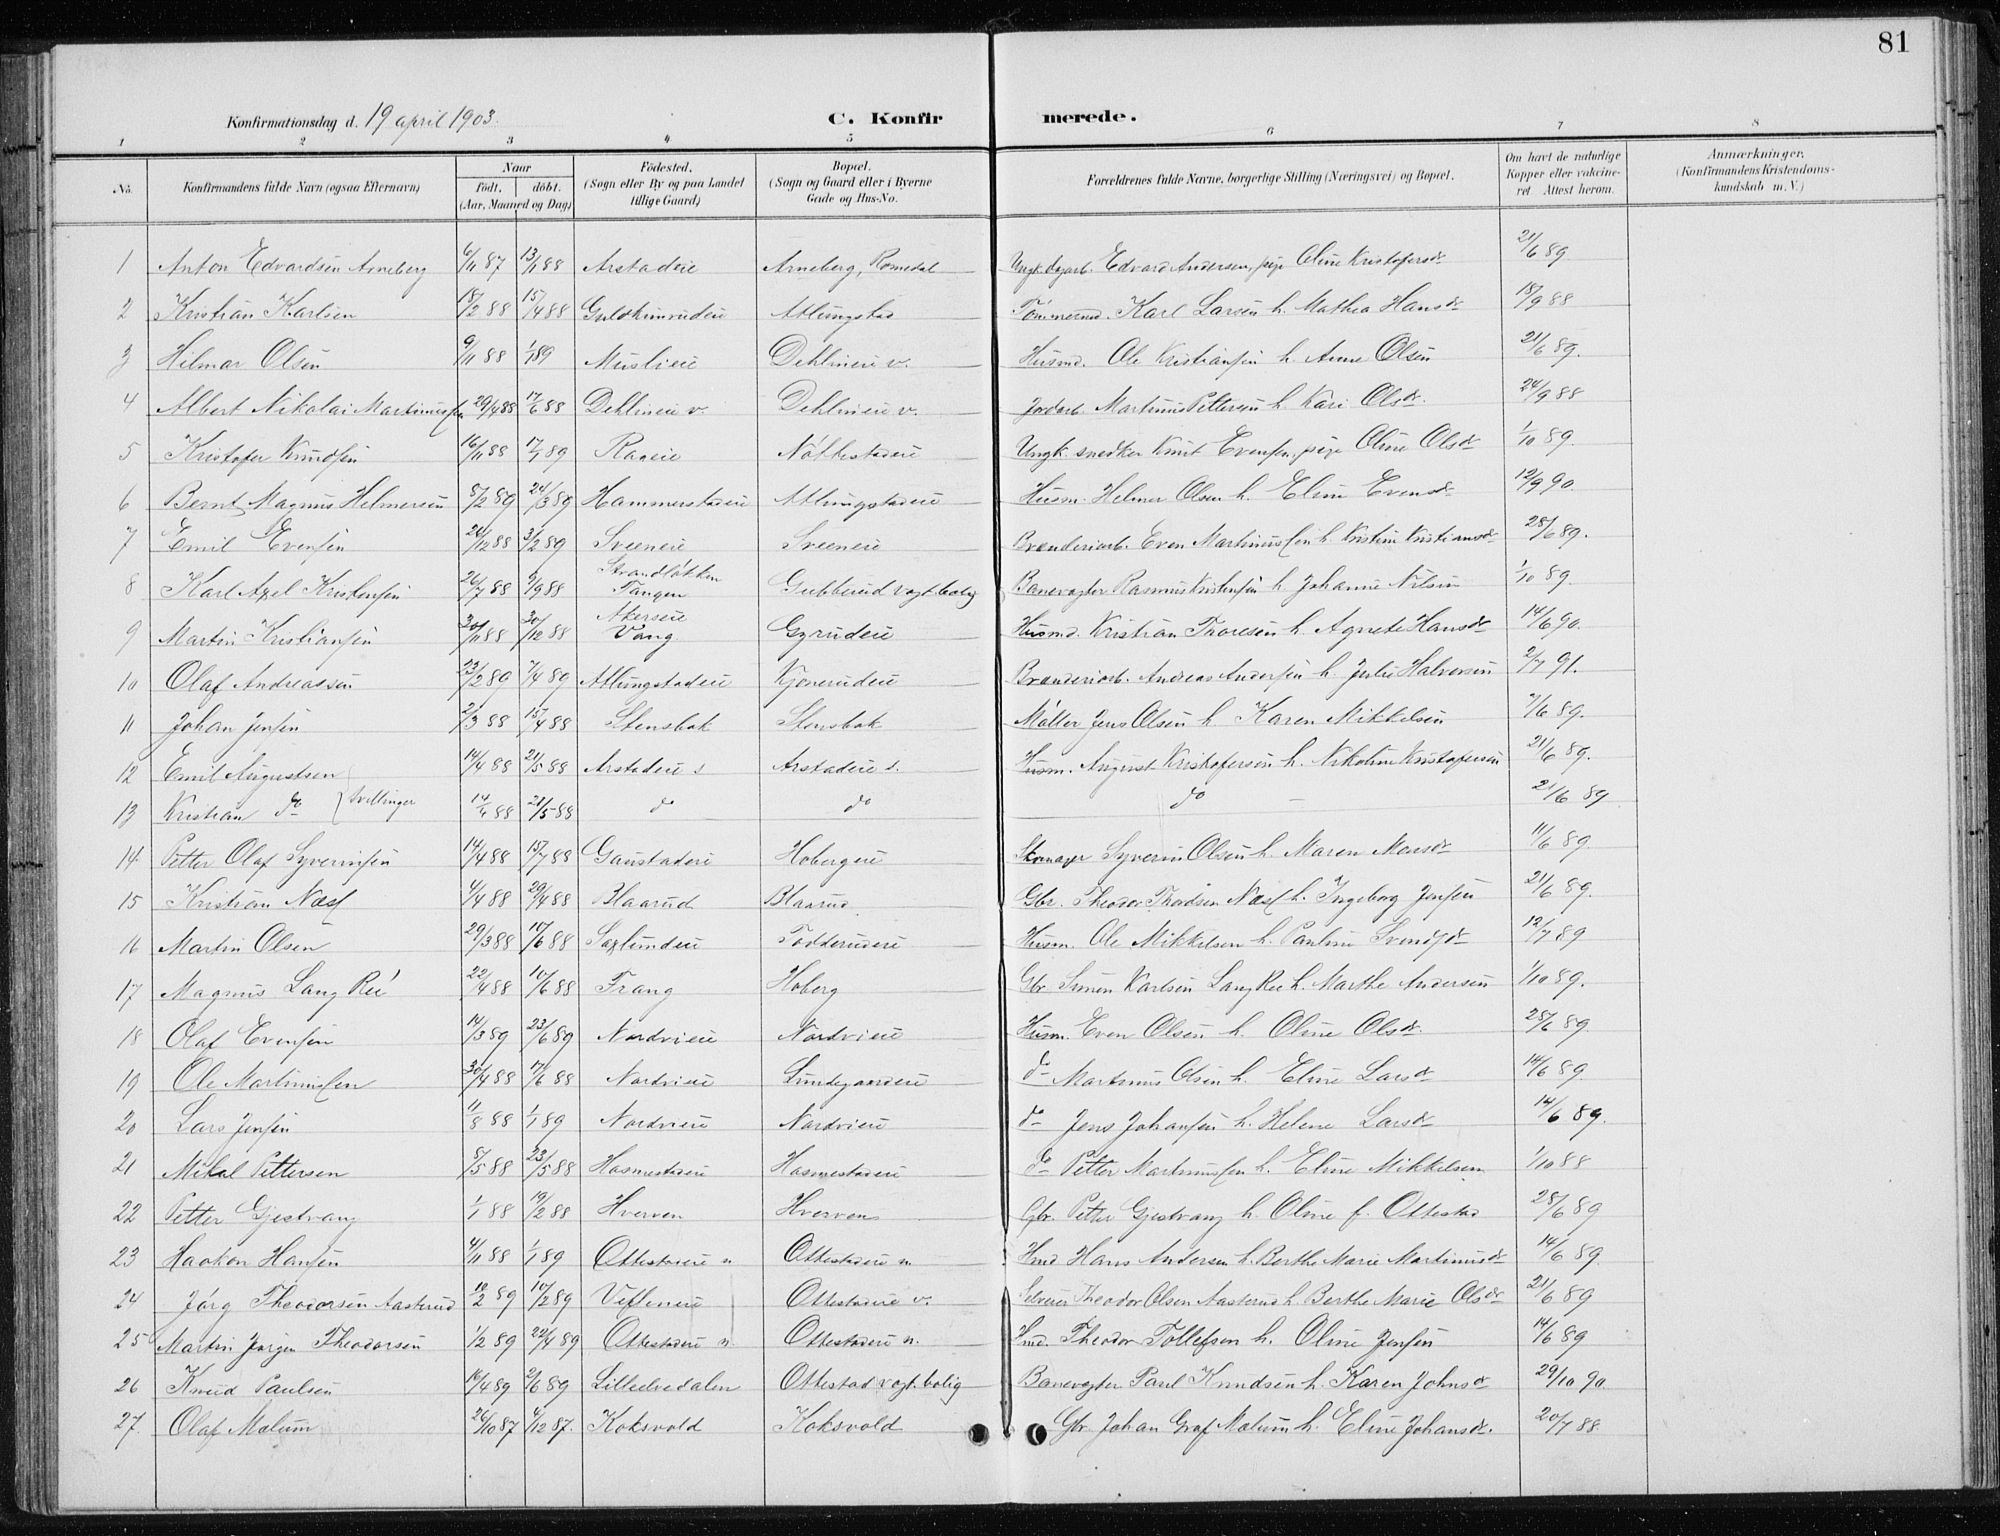 81
Konfirmationsdag d. 19 april 1903. C. Konfirmerede.
1 2 3 4 5 6 7 8
No. Konfirmandens fulde Navn (ogsaa Efternavn) Naar født, døbt. (Aar, Maaned og Dag) Fødested. (Sogn eller By og paa Landet tillige Gaard) Bopæl. (Sogn og Gaard eller i Byerne Gade og Hus-No. Forældrenes fulde Navne, borgerlige Stilling (Næringsvei) og Bopæl. Om havt de naturlige Kopper eller vakcineret. Attest herom. Anmærkninger. (Konfirmandens Kristendomskundskab m. V.)
1 Anton Edvardsen Arneberg 6/11 87 13/1 88 Arstadeie Arneberg, Romedal Ungk. dagarb. Edvard Andersen, pige Oline Kristofersdr 21/6 89.
2 Kristian Karlsen 18/2 88 15/4 88 Guldkinrudeie Atlungstad Tømmermd. Karl Larsen h. Mathea Hansdr 18/9 88
3 Hilmar Olsen 9/11 88 1/1 89 Muslieie Dehlineie v. Husmd. Ole Kristiansen h. Anne Olsen 21/6 89.
4 Albert Nikolai Martinussen 29/4 88 17/6 88 Dehlineie v. Dehlineie v. Jordarb. Martinus Pettersen h. Kari Olsdr. 24/9 88
5 Kristofer Knudsen 16/11 88 17/1 89 Raaeie Nøttestadeie Ungk. snedker Knut Evensen, pige Oline Olsdr 1/10 89.
6 Bernt Magnus Helmersen 8/2 89 24/3 89 Hammerstadeie Atlungstadeie Husm. Helmer Olsen h. Eline Evensdr 12/9 90.
7 Emil Evensen 26/12 88 3/2 89 Sveeneie Sveeneie Brænderiarb. Even Martinussen h. Kristine Kristiansdr 28/6 89.
8 Karl Axel Kristensen 26/7 88 9/9 88 Strandløkken Tangen Gubberud vogt.bolig Banevogter Rasmus Kristensen h Johanne Nilsen 1/10 89.
9 Martin Kristiansen 30/11 88 30/12 88 Akerseie Vang Gyrudeie Husmd. Kristian Thoresen h. Agnete Hansdr 14/6 90.
10 Olaf Andreassen 23/2 89 7/4 89 Atlungstadeie Kjonerudeie Brænderiarb. Andreas Andersen h. Julie Halvorsen 2/7 91.
11 Johan Jensen 2/3 88 15/4 88 Stensbak Stensbak Møller Jens Olsen h. Karen Mikkelsen 7/6 89.
12 Emil Augustsen 14/4 88 21/5 88 Arstadeie s Arstadeie s. Husm. August Kristofersen h. Nikoline Kristofersen 21/6 89.
13 Kristian do } tvillinger 14/4 88 21/5 88 do do do 21/6 89
14 Petter Olaf Syverinsen 14/4 88 15/7 88 Gaustadeie Hobergeie Skomager Syverin Olsen h. Maren Monsdr 11/6 89.
15 Kristian Næss 4/4 88 29/4 88 Blaarud Blaarud Gbr. Theodor Thordsen Næss h. Ingeborg Jensen 21/6 89.
16 Martin Olsen 29/3 88 10/6 88 Saxlundeie Todderudeie Husm. Ole Mikkelsen h. Pauline Svendsdr 12/7 89
17 Magnus Lang Ree 22/4 88 10/6 88 Frang Hoberg Gbr Simen Karlsen Lang Ree h. Marthe Andersen 1/10 89.
18 Olaf Evensen 14/3 89 23/6 89 Nordvieie Nordvieie Husm. Even Olsen h. Oline Olsdr. 28/6 89.
19 Ole Martinussen 30/4 88 17/6 88 Nordvieie Lundegaardeie do Martinus Olsen h. Eline Larsdr 14/6 89.
20 Lars Jensen 11/8 88 1/1 89 Nordvieie Nordvieie do Jens Johansen h. Helene Larsdr 14/6 89.
21 Mikal Pettersen 8/5 88 23/5 88 Hasmestadeie Hasmestadeie do Petter Martinussen h. Eline Mikkelsen 1/10 88
22 Petter Gjestvang 1/1 88 19/2 88 Hverven Hverven Gbr. Petter Gjestvang h. Oline f. Ottestad 28/6 89
23 Haakon Hansen 4/11 88 1/1 89 Ottestadeie n Ottestadeie n. Hmd Hans Andersen h. Berthe Marie Martinusdr 14/6 89.
24 Jørg Theodorsen Aasterud 12/2 89 10/2 89 Vifleneie Ottestadeie v. Selveier Theodor Olsen Aasterud h. Berthe Marie Olsdr 21/6 89
25 Martin Jørgen Theodorsen 1/2 89 22/4 89 Ottestadeie n. Ottestadeie n. Hmd. Theodor Tollefsen h. Oline Jensen 14/6 89
26 Knud Paulsen 16/4 89 2/6 89 Lilleelvedalen Ottestad vogt.bolig Banevogter Paul Knudsen h. Karen Johnsdr 29/10 90
27. Olaf Malum 26/10 87 4/12 87. Koksvold Koksvold Gbr Johan Graf Malum h. Eline Johansdr. 20/7 88.